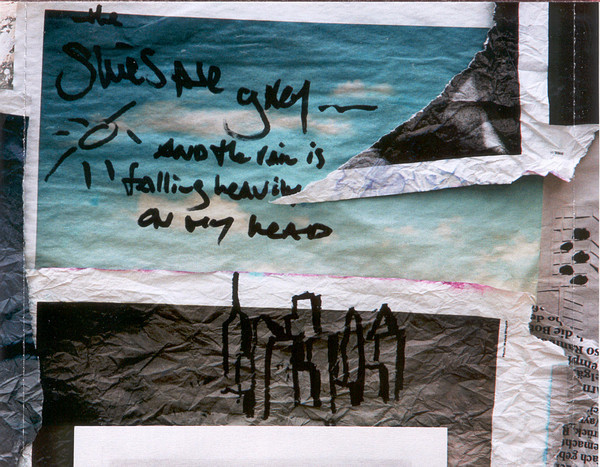 the
Skies are grey —
AND the rain is
falling heavily
on my head